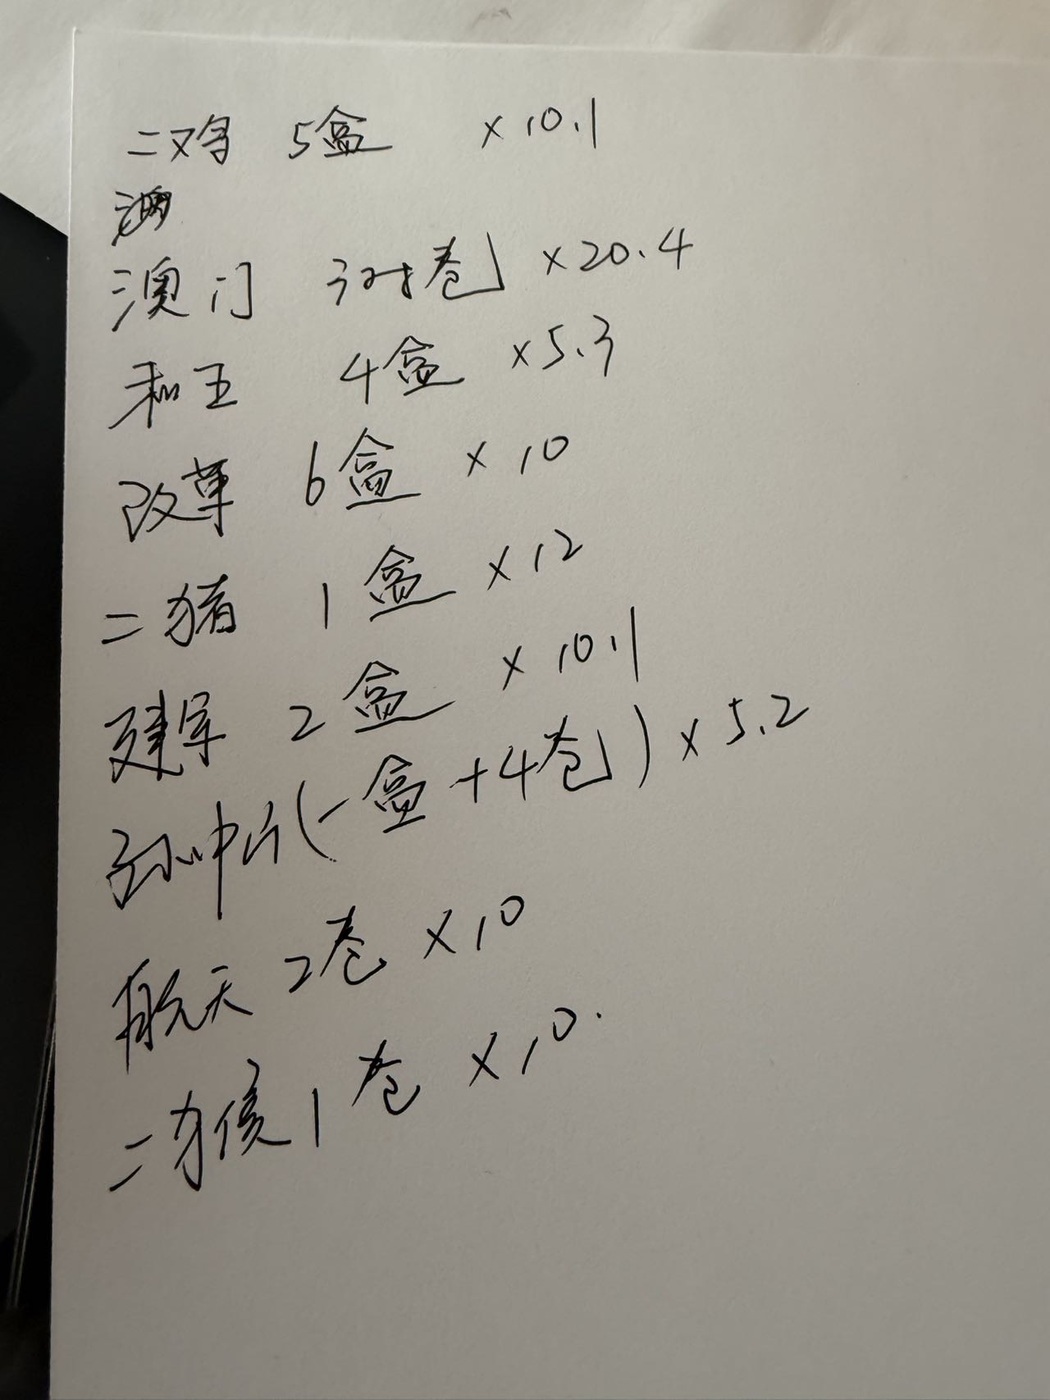 二鸡 5盒 ×10.1
澳门 3对卷 ×20.4
和五 4盒 ×5.3
改革 6盒 ×10
二猪 1盒 ×12
建军 2盒 ×10.1
孙中山(一盒+4卷)×5.2
航天 2卷 ×10
二猴 1卷 ×10.